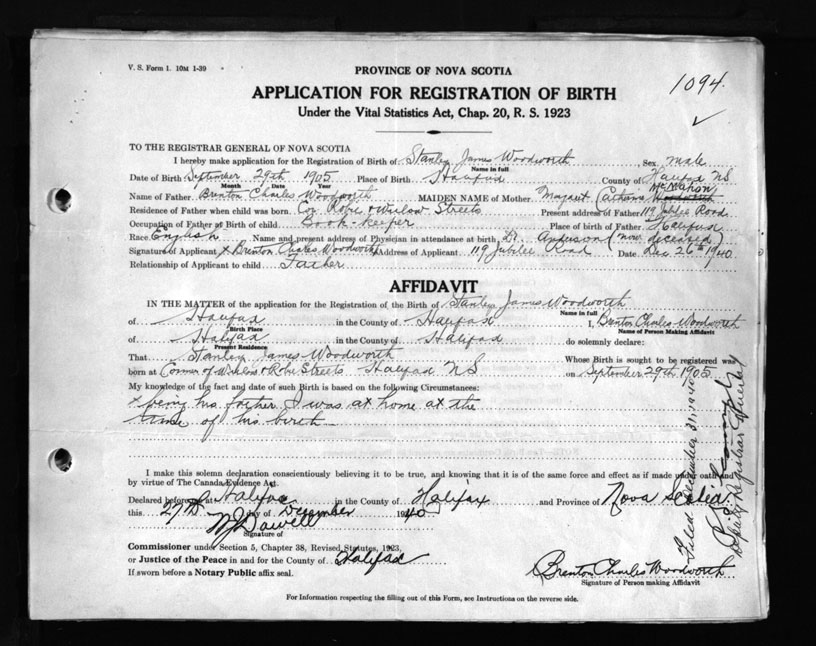 V. S. Form 1. 10M 1-39
PROVINCE OF NOVA SCOTIA
1094
APPLICATION FOR REGISTRATION OF BIRTH
Under the Vital Statistics Act, Chap. 20, R. S. 1923
TO THE REGISTRAR GENERAL OF NOVA SCOTIA
I hereby make application for the Registration of Birth of Stanley James Woodworth Sex male
Name in full
Date of Birth September 29th 1905 Place of Birth Halifax County of Halifax NS
Month Date Year
McMahon
Name of Father Brenton Charles Woodworth MAIDEN NAME of Mother Margaret Woodworth
Residence of Father when child was born Cor Robie + Streets Present address of Father 119 Jubilee Road
Occupation of Father at Birth of child Book-keeper Place of birth of Father Halifax
Race English Name and present address of Physician in attendance at birth Dr. Anderson (now deceased)
Signature of Applicant x Brenton Charles Woodworth Address of Applicant 119 Jubilee Road Date Dec 26th 1940
Relationship of Applicant to child Father
AFFIDAVIT
IN THE MATTER of the application for the Registration of the Birth of Stanley James Woodworth
Name in full
of Halifax in the County of Halifax I, Brenton Charles Woodworth
Birth Place Name of Person Making Affidavit
of Halifax in the County of Halifax do solemnly declare:
Present Residence
That Stanley James Woodworth Whose Birth is sought to be registered was
born at Corner of + Robie Streets Halifax NS on September 29th 1905
My knowledge of the fact and date of such Birth is based on the following Circumstances:
x being his father I was at home at the
time of his birth
I make this solemn declaration conscientiously believing it to be true, and knowing that it is of the same force and effect as if made under oath and
by virtue of The Canada Evidence Act.
Declared before me at Halifax in the County of Halifax and Province of Nova Scotia
this 27th day of December 1940
Signature of
Commissioner under Section 5, Chapter 38, Revised Statutes, 1923,
or Justice of the Peace in and for the County of Halifax
If sworn before a Notary Public affix seal.
Brenton Charles Woodworth
Signature of Person making Affidavit
For Information respecting the filling out of this Form, see Instructions on the reverse side.
Filed December 31, 1940
Deputy Registrar